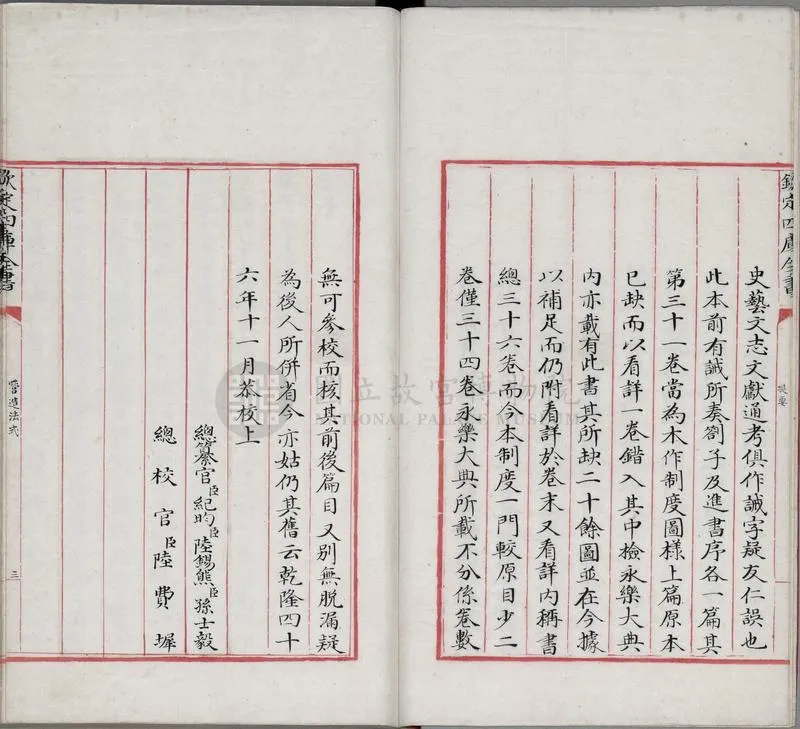 欽定四庫全書
提要
史藝文志文獻通考俱作誠字疑友仁誤也
此本前有誠所奏劄子及進書序各一篇其
第三十一卷當為木作制度圖樣上篇原本
已缺而以看詳一卷錯入其中檢永樂大典
內亦載有此書其所缺二十餘圖並在今據
以補足而仍附看詳於卷末又看詳內稱書
總三十六卷而今本制度一門較原目少二
卷僅三十四卷永樂大典所載不分係卷數
無可參校而核其前後篇目又別無脫漏疑
為後人所併省今亦姑仍其舊云乾隆四十
六年十一月恭校上
總纂官臣紀昀臣陸錫熊臣孫士毅
總校官臣陸費墀
欽定四庫全書
營造法式
三
國立故宮博物院
NATIONAL PALACE MUSEUM